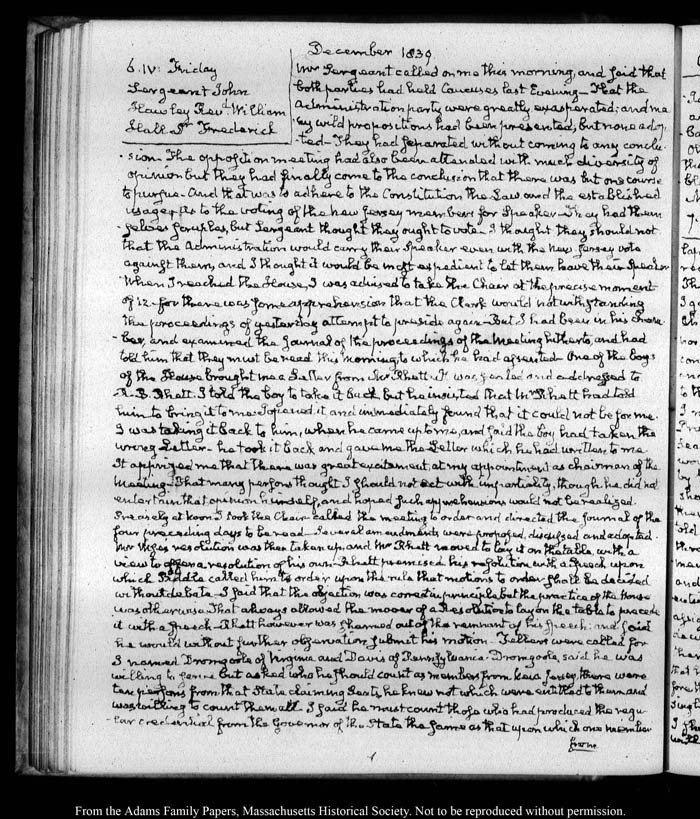 December 1839
6. IV: Friday
Sergeant John
Hawley Revd William
Hall Dr Frederick
Mr Sergeant called on me this morning, and said that
both parties had held Caucuses last Evening— That the
Administration party were greatly exasperated; and ma
-ny wild propositions had been presented, but none adop
-ted— They had separated without coming to any conclu-
-sion. The opposition meeting had also been attended with much diversity of
opinion but they had finally come to the conclusion that there was but one course
to pursue— And that was to adhere to the Constitution the Law and the established
usage. As to the voting of the New Jersey members for Speaker— They had them
-selves scruples, but Sergeant thought they ought to vote. I thought they should not
that the Administration would carry their Speaker even with the New Jersey vote
against them, and I thought it would be most expedient to let them have their Speaker
When I reached the House, I was advised to take the Chair at the precise moment
of 12. for there was some apprehension that the Clerk would not withstanding
the proceedings of yesterday attempt to preside again— But I had been in his cham
-ber, and examined the Journal of the proceedings of the Meeting hitherto, and had
told him that they must be read this morning, to which he had assented. One of the boys
of the House brought me a Letter from Mr Rhett. It was sealed and addressed to
R. B. Rhett. I told the boy to take it back but he insisted that Mr Rhett had told
him to bring it to me. I opened it and immediately found that it could not be for me.
I was taking it back to him, when he came up to me, and said the boy had taken the
wrong Letter— he took it back and gave me the Letter which he had written to me
It apprized me that there was great excitement, at my appointment as chairman of the
Meeting— That many persons thought I should not act with impartiality, though he did not
entertain that opinion himself, and hoped such apprehensions would not be realized.
Precisely at Noon I took the Chair called the meeting to order and directed the Journal of the
four preceding days to be read— Several amendments were proposed, discussed and adopted.
Mr Wise's resolution was then taken up, and Mr Rhett moved to lay it on the table, with a
view to offer a resolution of his own— Rhett premised his resolution with a speech upon
which Biddle called him to order upon the rule that motions to order shall be decided
without debate— I said that the objection was correct in principle, but the practice of the House
was otherwise. That always allowed the mover of a Resolution to lay on the table to precede
it with a speech— Rhett however was shamed out of the remnant of his speech; and said
he would without further observation submit his motion— Tellers were called for
I named Dromgoole of Virginia and Davis of Pennsylvania. Dromgoole, said he was
willing to serve but asked who he should count as members from New Jersey, there were
ten persons from that State claiming Seats, he knew not which were entitled to them and
was willing to count them all. I said he must count those who had produced the regu
-lar credential from the Governor of the State the same as that upon which one member
from
From the Adams Family Papers, Massachusetts Historical Society. Not to be reproduced without permission.